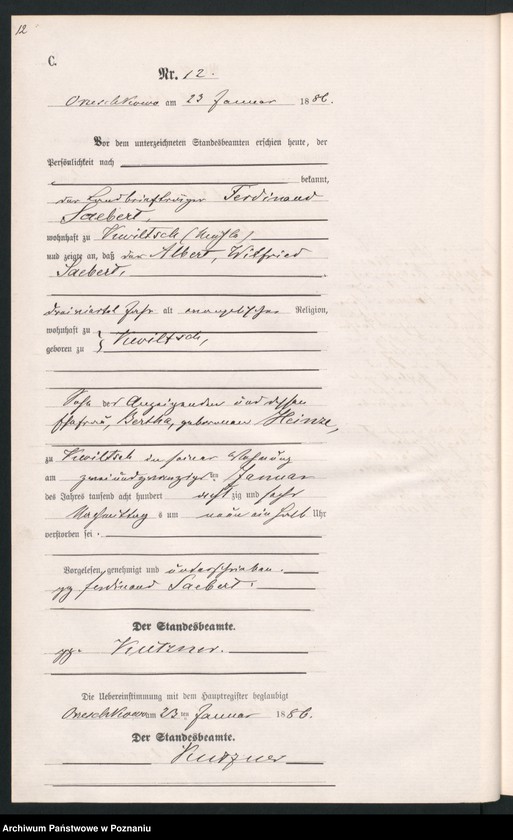 12
C.
Nr. 12.
Orzeschkowo am 23 Januar 1886.
Vor dem unterzeichneten Standesbeamten erschien heute, der
Persönlichkeit nach
bekannt,
der Landbriefträger Ferdinand
Saebert,
wohnhaft zu Kwiltsch
und zeigte an, daß der Albert, Wilfried
Saebert,
dreiviertel Jahr alt evangelischer Religion,
wohnhaft zu
geboren zu } Kwiltsch,
Sohn des Anzeigenden und dessen
Ehefrau, Bertha, geborenen Heinze,
zu Kwiltsch in seiner Wohnung
am zweiundzwanzigsten Januar
des Jahres tausend acht hundert achtzig und sechs
Nachmittags um neun ein halb Uhr
verstorben sei.
Vorgelesen, genehmigt und unterschrieben.
gz Ferdinand Saebert.
Der Standesbeamte.
gz. Kutzner.
Die Uebereinstimmung mit dem Hauptregister beglaubigt
Orzeschkowo am 23ten Januar 1886.
Der Standesbeamte.
Kutzner
Archiwum Państwowe w Poznaniu